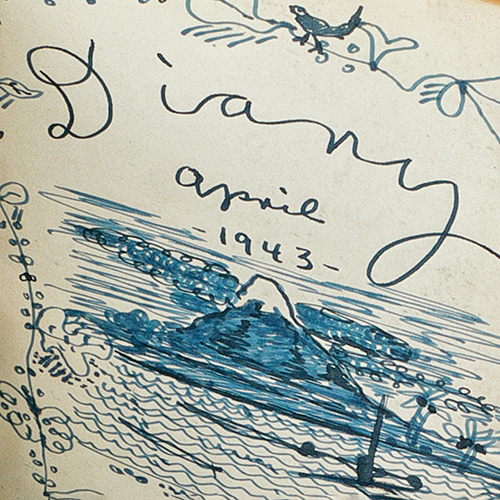 Diany
april
-1943-